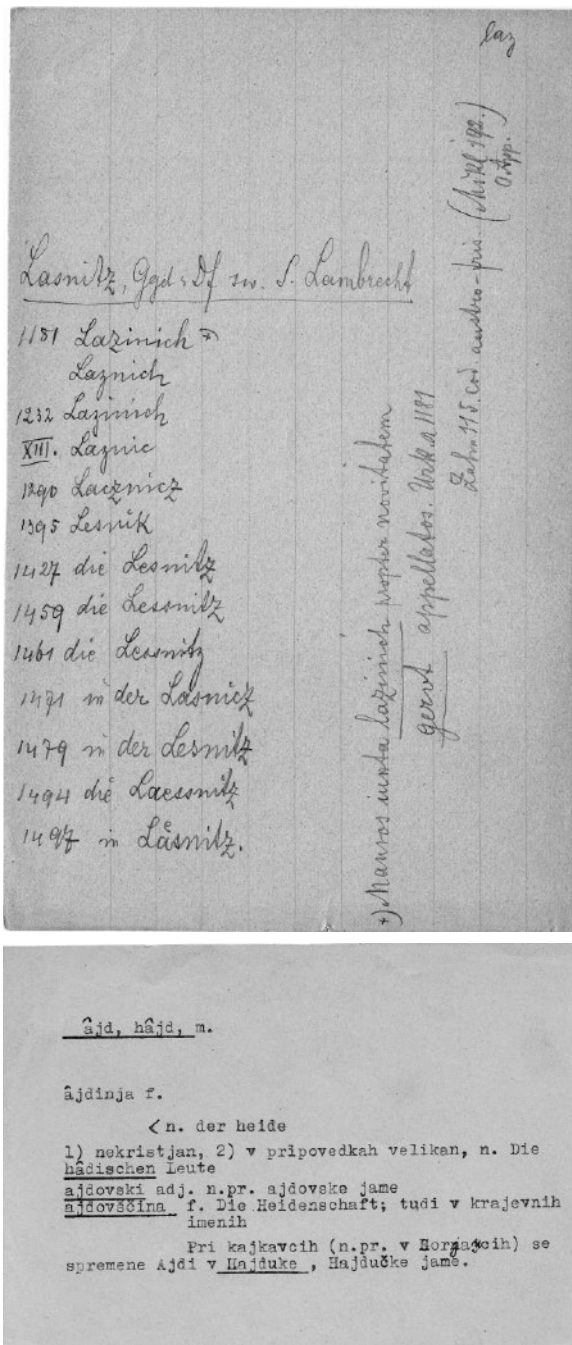 laz
Lasnitz, Ggd. Df sw. S. Lambrecht
1181 Lazinich +)
Laznich
1232 Lazinich
XIII. Laznic
1290 Lacznicz
1395 Lesnik
1427 die Lesnitz
1459 die Lessnitz
1461 die Lessnitz
1471 in der Lasnicz
1479 in der Lesnitz
1494 die Laessnitz
1497 in Låsnitz.
+) Mansos iuxta lazinich propter novitatem
gervt appellatos. Urk. a 1181
Zahn 115. cod. austro-fris. (Mikl 192.)
O. App.
âjd, hâjd, m.
âjdinja f.
< n. der heide
1) nekristjan, 2) v pripovedkah velikan, n. Die
hâdischen Leute
ajdovski adj. n.pr. ajdovske jame
ajdovščina f. Die Heidenschaft; tudi v krajevnih
imenih
Pri kajkavcih (n.pr. v Horjancih) se
spremene Ajdi v Hajduke , Hajdučke jame.